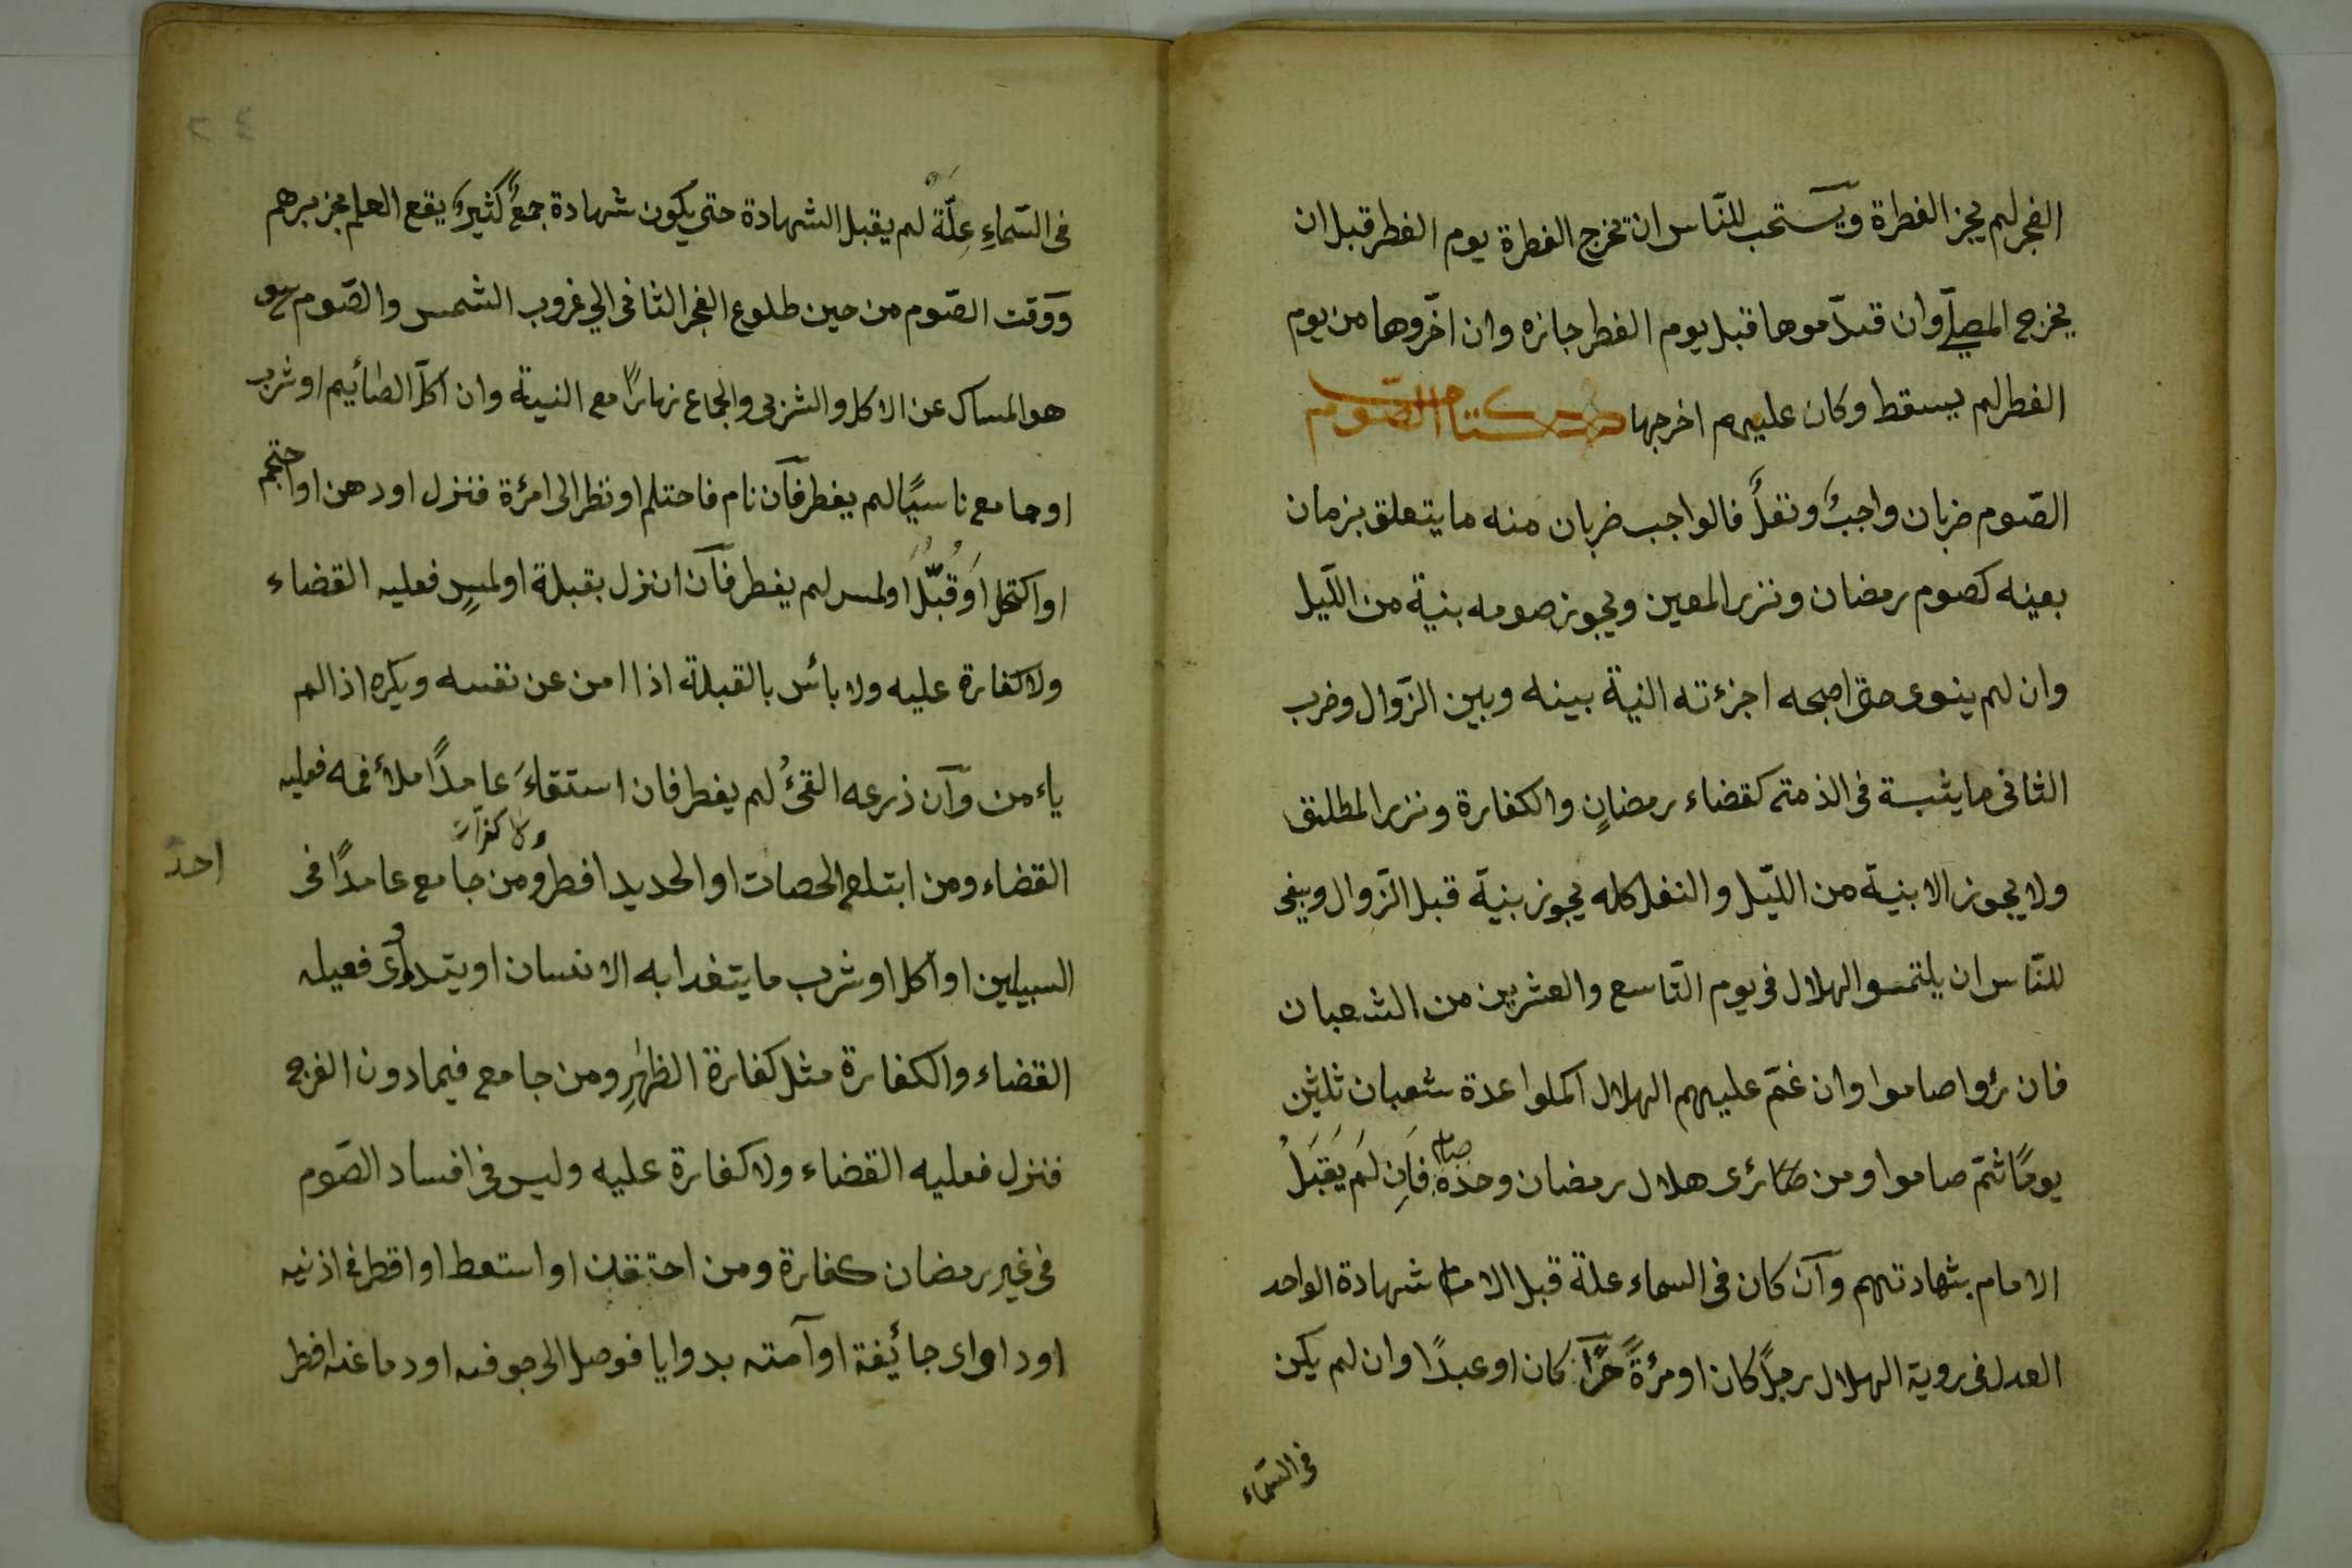 الفجر لم يجز الفطرة ويستحب للنّاس ان تخرج الفطرة يوم الفطر قبل ان
يخرج المصلّے وان قدّموها قبل يوم الفطر جازه وان اخّروها من يوم
الفطر لم يسقط وكان عليهم اخرجها كتاب الصّوم
الصّوم ضربان واجبٌ ونفلٌ فالواجب ضربان منه ما يتعلق بزمان
بعينه كصوم رمضان ونزر المعين ويجوز صومه بنية من الّليل
وان لم ينوى حتى اصبحه اجزءته النية بينه وبين الزّوال وضرب
الثانى ما يثبة فى الذمته كقضاء رمضانٍ والكفارة ونزر المطلق
ولا يجوز الا بنية من الليّل والنفل كله يجوز بنيّة قبل الزّوال وينبغى
للنّاس ان يلتمسو الهلال فى يوم التّاسع والعشرين من الشعبان
فان رؤوا صاموا وان غمّ عليهم الهلال اكملوا عدة شعبان ثلثين
يومًا ثمّ صاموا ومن رئرى هلال رمضان وحدهُ صام فَاِن لَم يَقبَلُ
الامام بشهادتهم وآن كان فى السماء علة قبل الامام شهادة الواحد
العدل فى روية الهلال رجلًا كان او مرُةً حُرًّا كان او عبدًا وان لم يكن
فى السّماء
٢٤
فى السّماءِ عِلّةٌ لم يقبل الشهادة حتى يكون شهادة جمعٌ كثيرٌ يقع العلم بخبرهم
وَوَقت الصّوم من حين طلوع الفجر الثانى الي غروب الشمس والصّوم
هو المساك عن الاكل والشرب والجماع نهارًا مع النية وان اكلَ الصّأيم او شرب
او جامع ناسيًا لم يفطر فآن نام فاحتلم او نظر الى امرُة فنزل او دهن او احتجم
او اكتحل اَوقُبّلَُ او لمس لم يفطر فآن انزل بقبلة او لمسٍ فعليه القضاء
ولا كفارة عليه ولا بأس بالقبلة اذا امن عن نفسه ويكره اذا لم
ياءمن وآن ذرعه القئُ لم يفطر فان استقاءَ عامدًا ملاءُ فمه فعليه
القضاء ومن ابتلع الحصات او الحديد افطر ولا كفرات ومن جامع عامدًا فى
احد
السبيلين او اكل او شرب ما يتغدا به الانسان او يتداوى فعيله
القضاء والكفارة مثل كفارة الظهٰرِ ومن جامع فيما دون الفرج
فنزل فعليه القضاء ولا كفارة عليه وليس فى افساد الصّوم
فى غير رمضان كفارة ومن احتقن او استعط او اقطر فى اذنيه
او داواى جائفة او آمته بدوايا فوصل الى جوفه او دماغه افطر